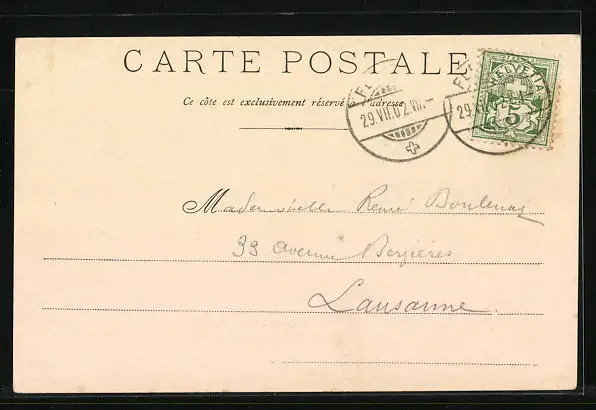 CARTE POSTALE
Ce côté est exclusivement réservé à l'adresse
29.VII.02.VII.-
29.V
HELVETIA
5
Mademoiselle René
33 avenue Bergières
Lausanne.